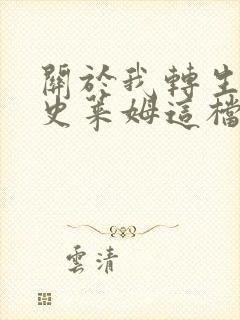 關於我轉生
史萊姆這檔
雲清